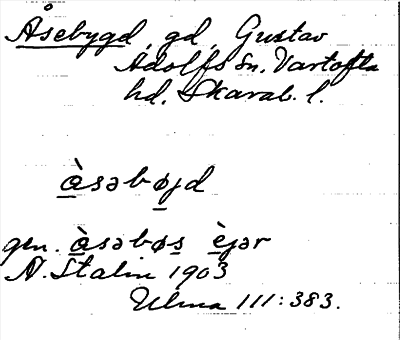 Åsebygd, gd, Gustav
Adolfs sn. Vartofta
hd. Skarab. l.
àsəbøjd
gen. àsəbøs èjər
N. Stalin 1903
Ulma 111:383.